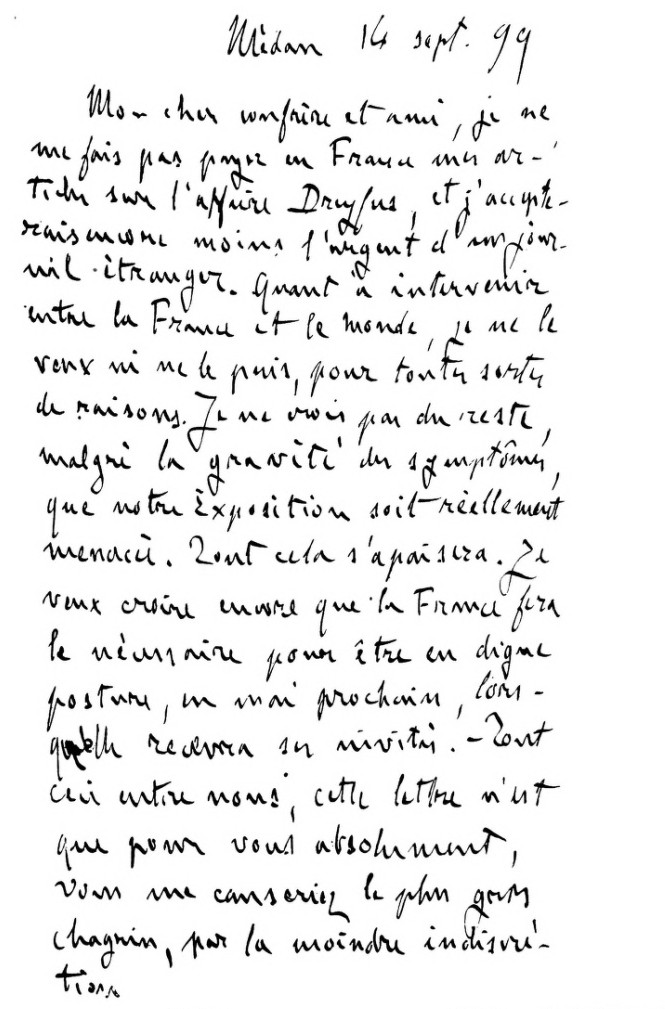 Médan 14 sept. 99
Mon cher confrère et ami, je ne
me fais pas payer en France mes ar-
ticles sur l'affaire Dreyfus, et j'accepte-
rais encore moins l'argent d'un jour-
nal étranger. Quant à intervenir
entre la France et le monde, je ne le
veux ni ne le puis, pour toutes sortes
de raisons. Je ne crois pas du reste,
malgré la gravité des symptômes,
que notre Exposition soit réellement
menacée. Tout cela s'apaisera. Je
veux croire encore que la France fera
le nécessaire pour être en digne
posture, en mai prochain, lors-
qu'elle recevra ses invités. - Tout
ceci entre nous, cette lettre n'est
que pour vous absolument,
vous me causeriez le plus gros
chagrin, par la moindre indiscré-
tion.